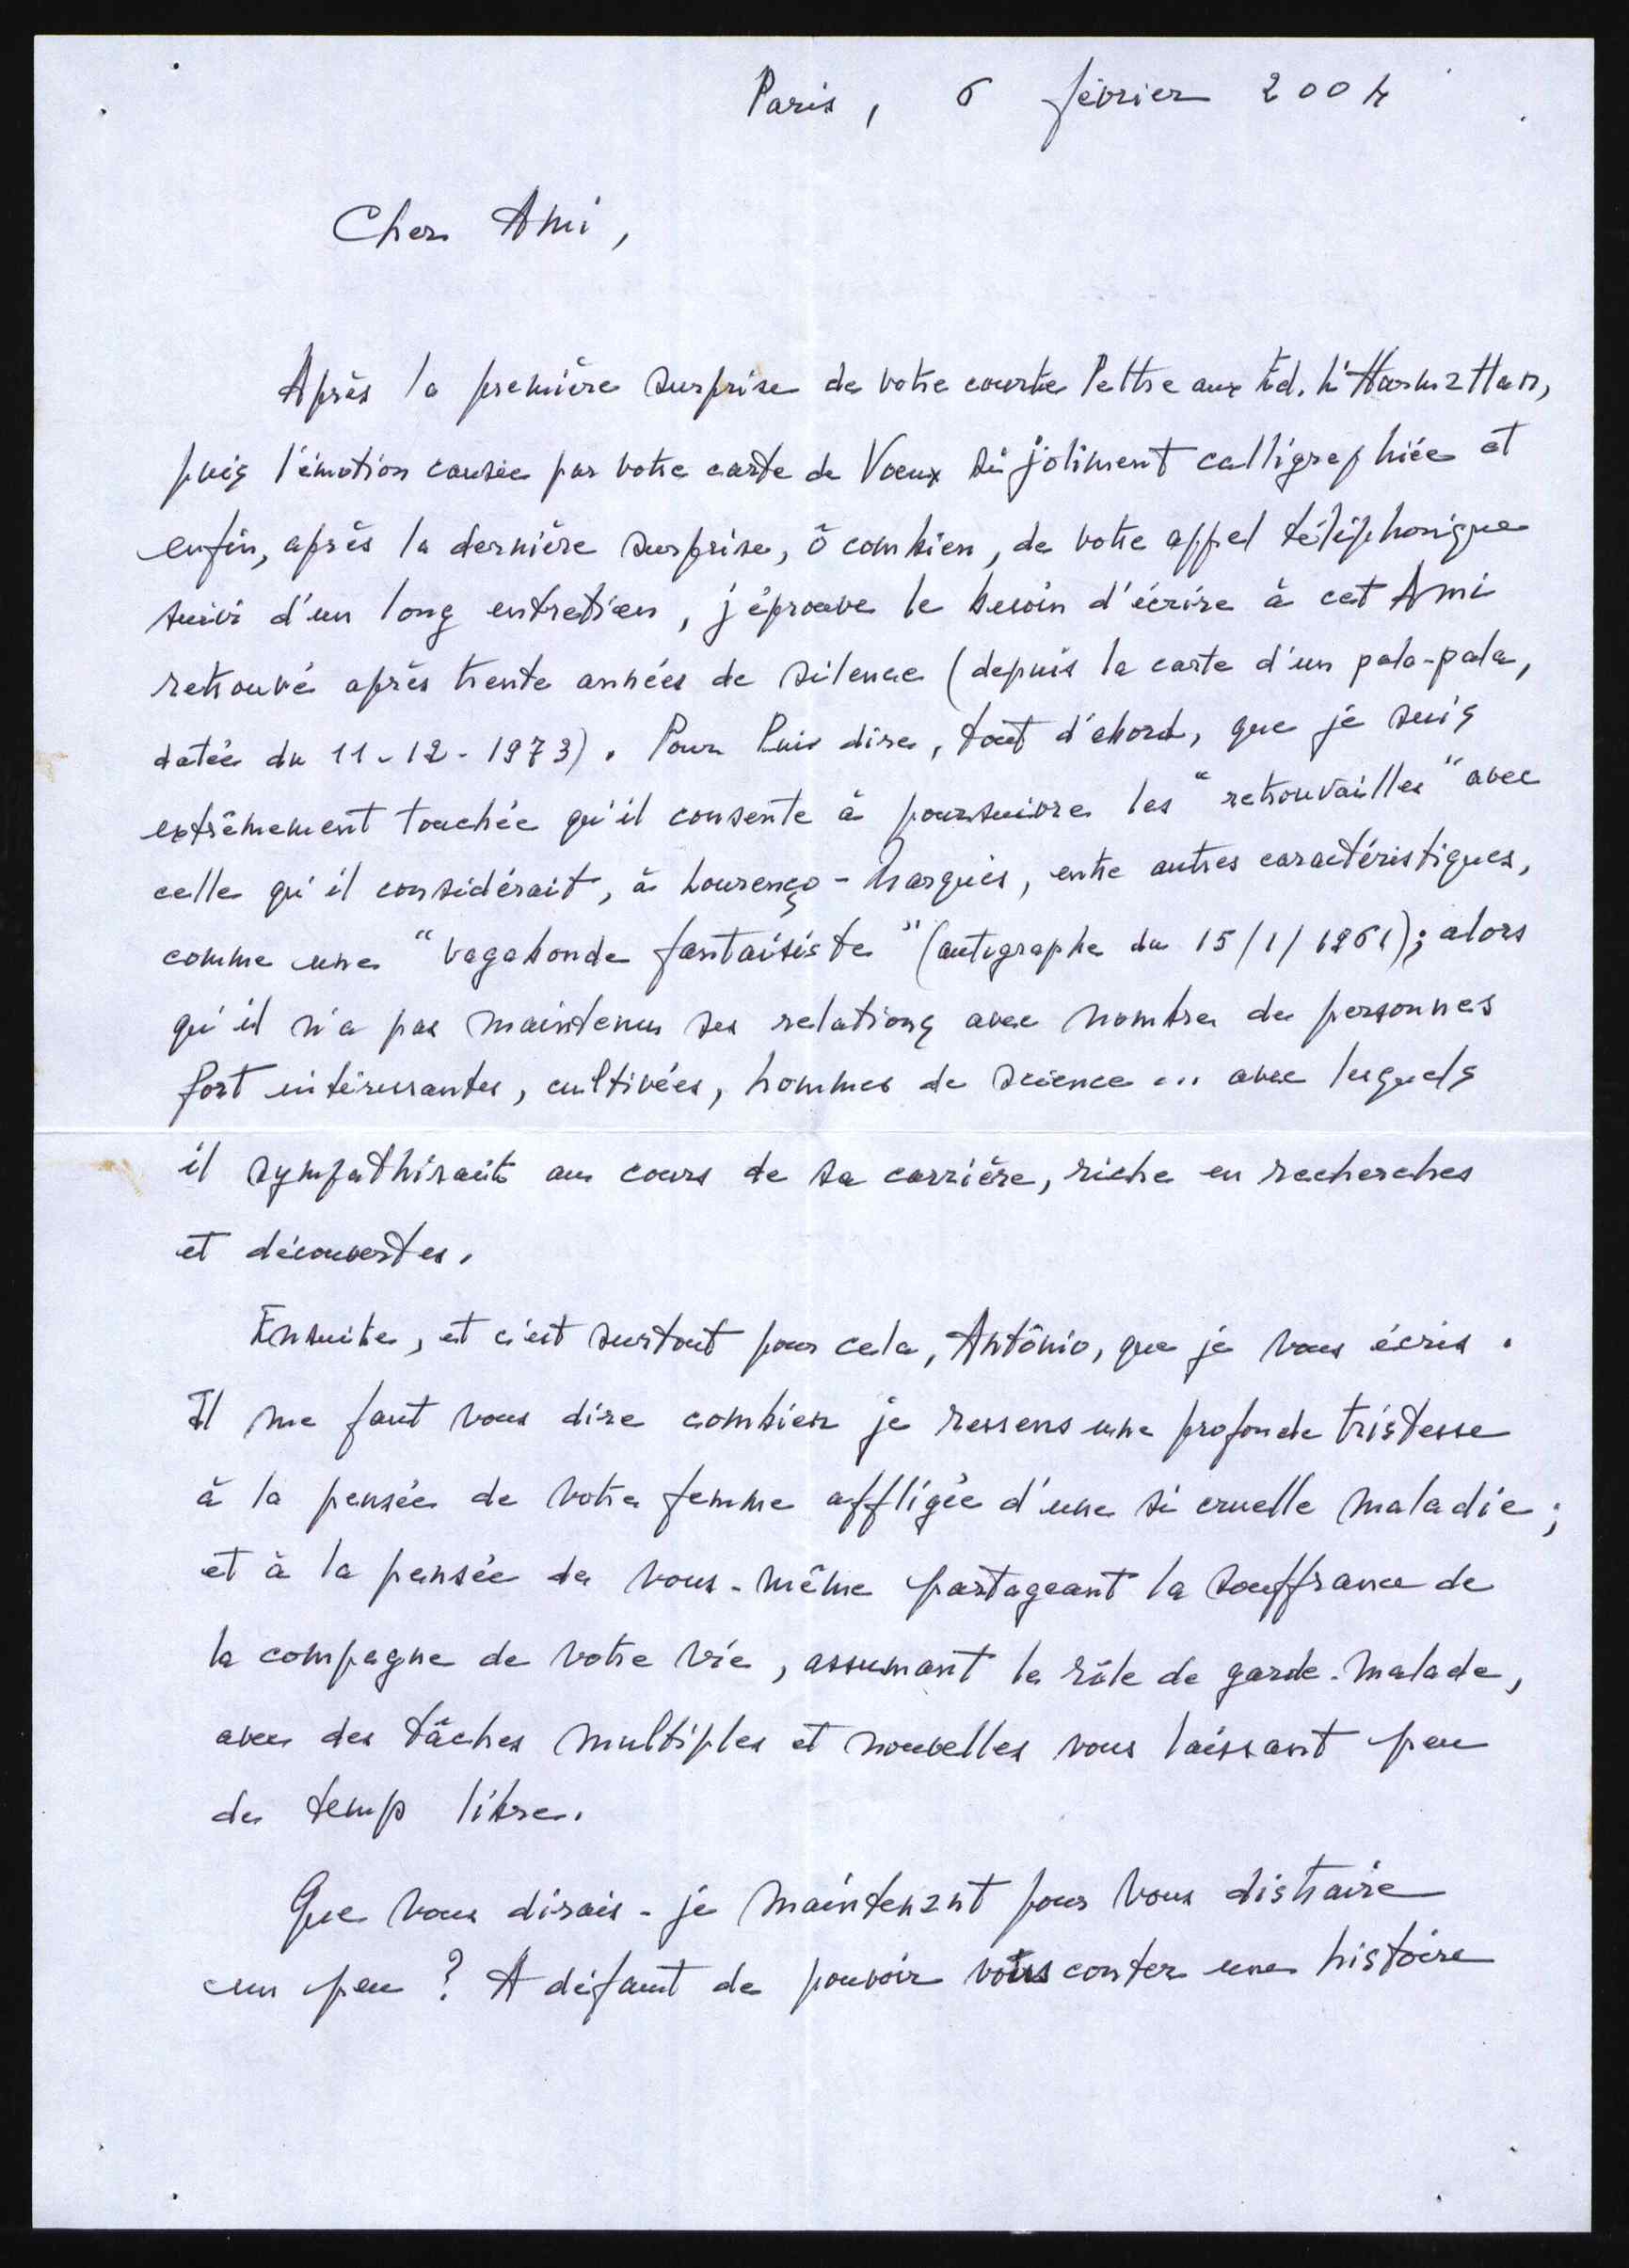 Paris, 6 février 2004
Cher Ami,
Après la première surprise de votre courte lettre aux Éd. L'Harmattan,
puis l'émotion causée par votre carte de Vœux si joliment calligraphiée et
enfin, après la dernière surprise, ô combien, de votre appel téléphonique
suivi d'un long entretien, j'éprouve le besoin d'écrire à cet Ami
retrouvé après trente années de silence (depuis la carte d'un pala-pala,
datée du 11-12-1973). Pour lui dire, tout d'abord, que je suis
extrêmement touchée qu'il consente à poursuivre les "retrouvailles" avec
celle qu'il considérait, à Lourenço-Marquès, entre autres caractéristiques,
comme une "vagabonde fantaisiste" (autographe du 15/1/1961); alors
qu'il n'a pas maintenu ses relations avec nombre de personnes
fort intéressantes, cultivées, hommes de science ... avec lesquels
il sympathisait au cours de sa carrière, riche en recherches
et découvertes.
Ensuite, et c'est surtout pour cela, António, que je vous écris.
Il me faut vous dire combien je ressens une profonde tristesse
à la pensée de votre femme affligée d'une si cruelle maladie;
et à la pensée de vous-même partageant la souffrance de
la compagne de votre vie, assumant le rôle de garde-malade,
avec des tâches multiples et nouvelles vous laissant peu
de temps libre.
Que vous dirais-je maintenant pour vous distraire
un peu ? A défaut de pouvoir vous conter une histoire